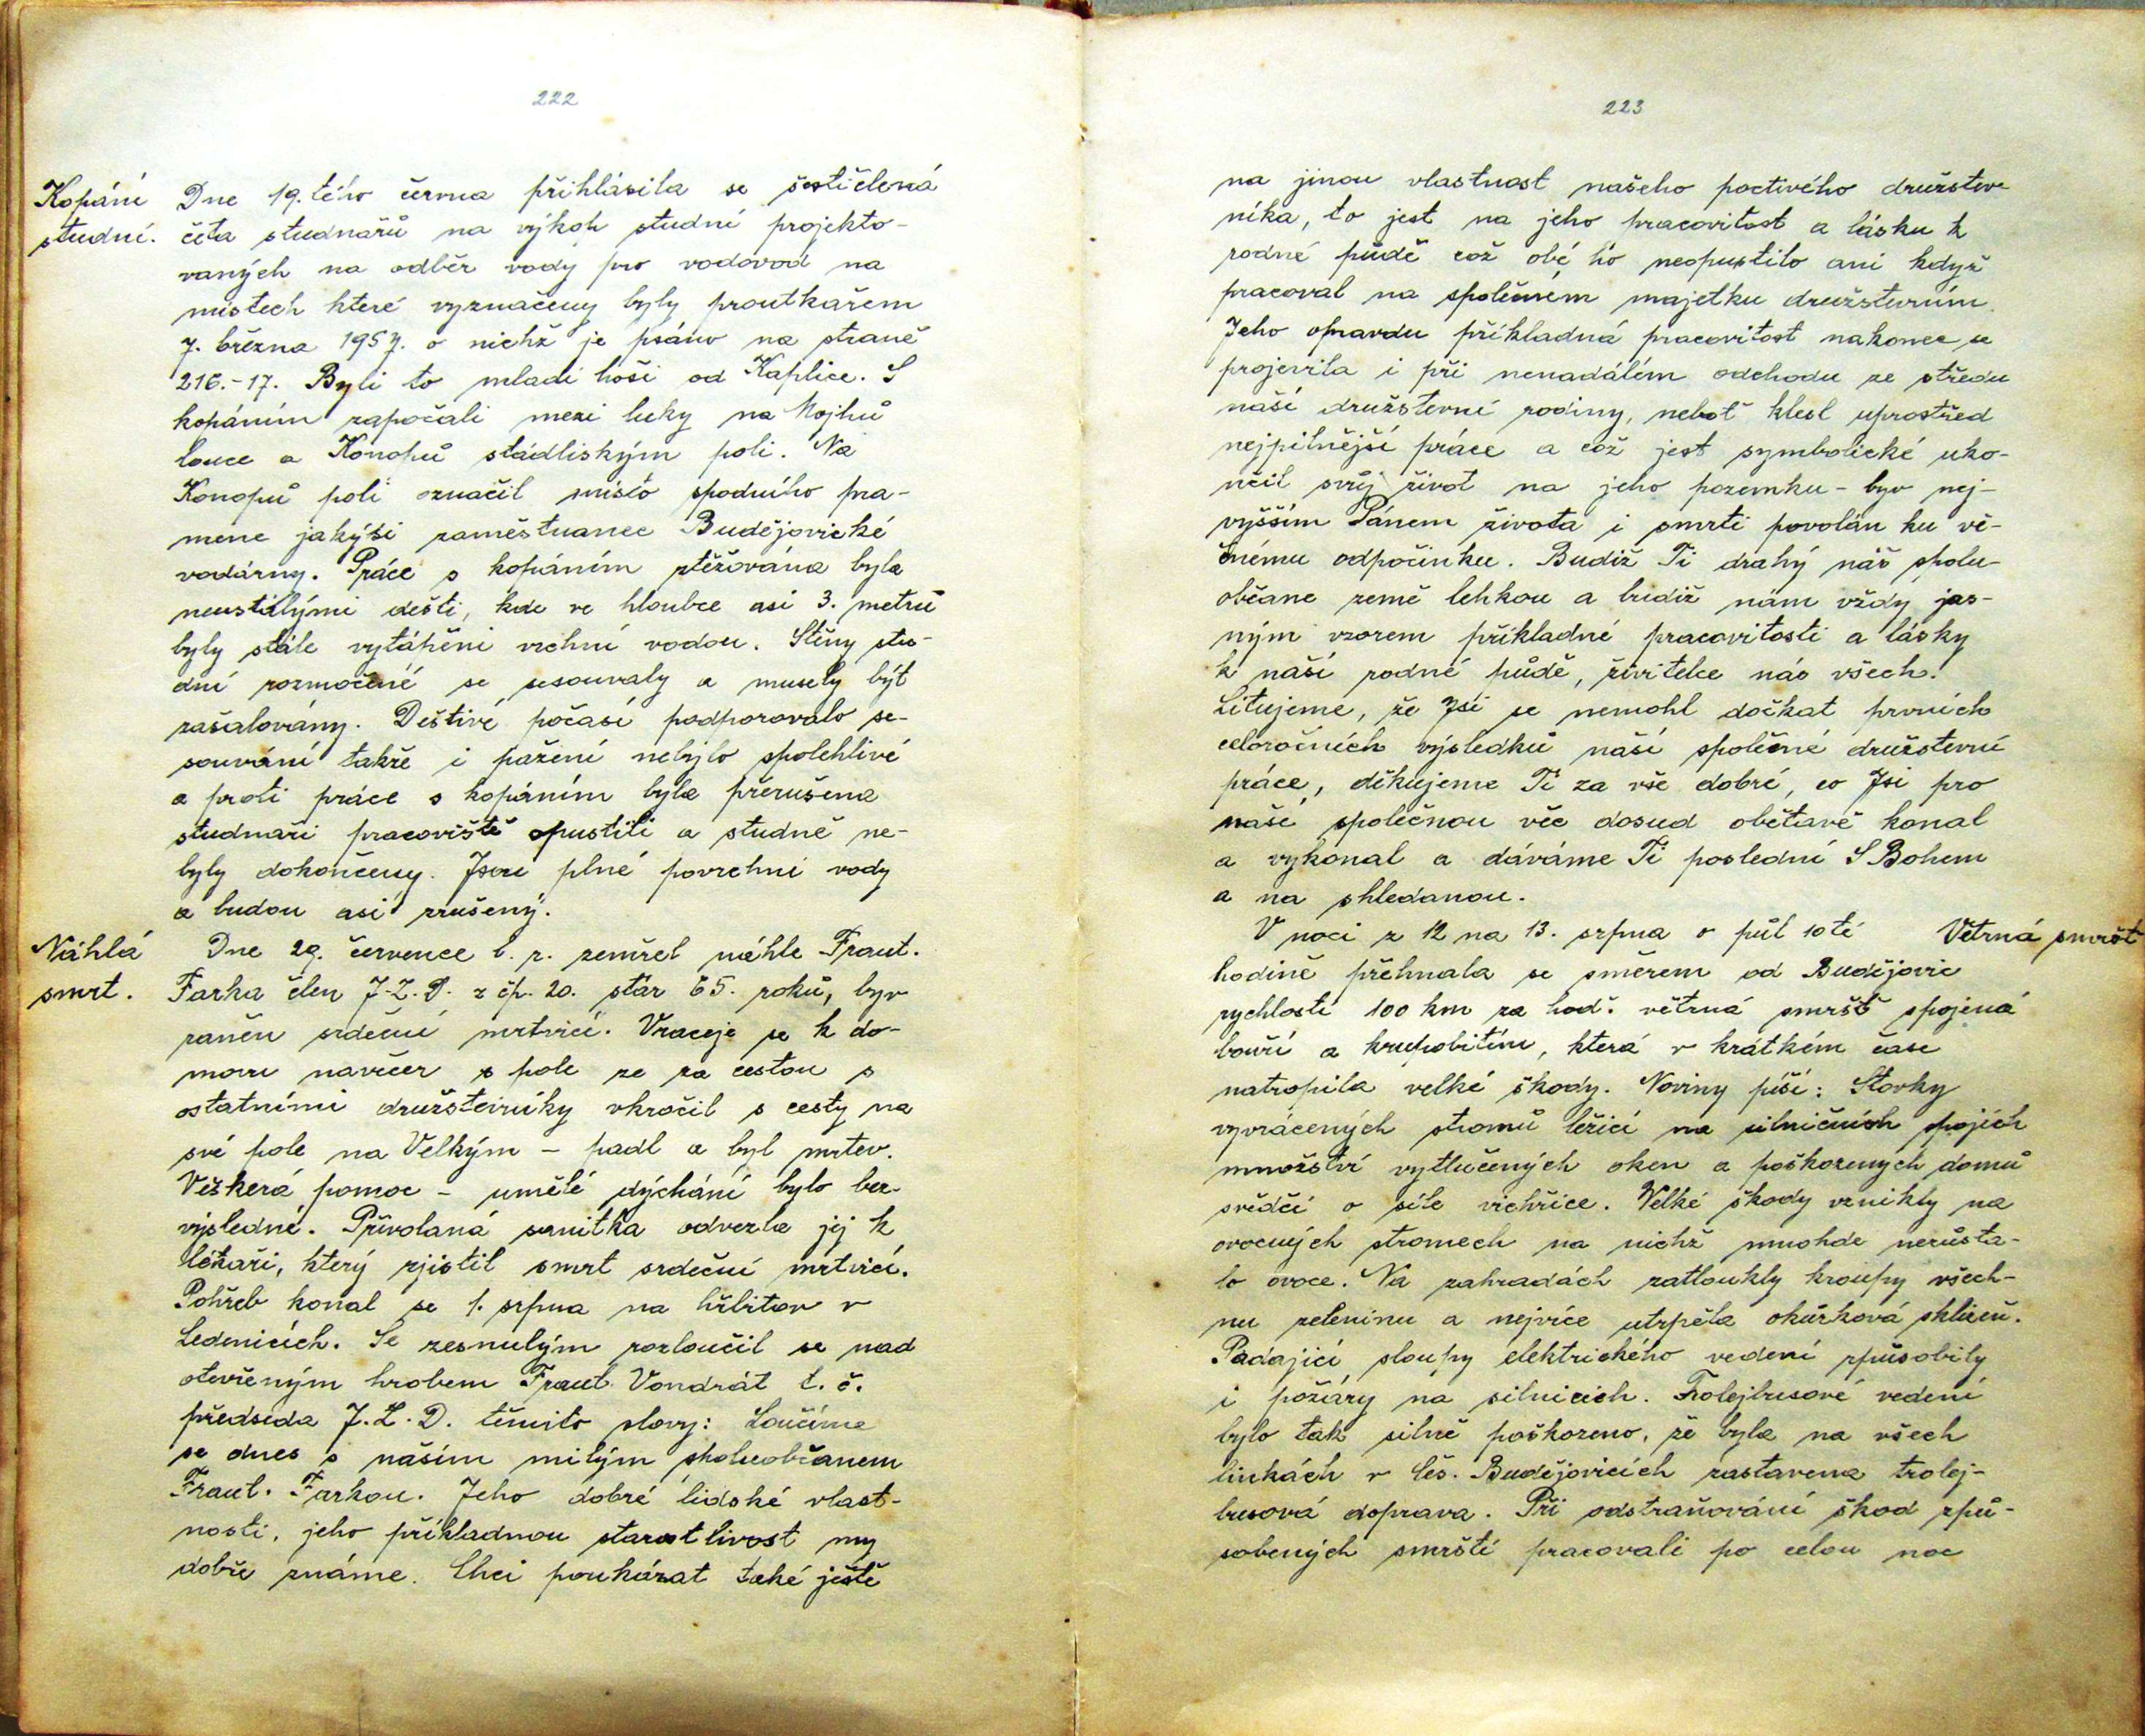 222
Kopání
studní.
Dne 19. tého června přihlásila se šestičlená
četa studnařů na výkop studní projekto-
vaných na odběr vody pro vodovod na
místech které vyznačeny byly proutkařem
7. března 1957. o nichž je psáno na straně
216.-17. Byli to mladí hoši od Kaplice. S
kopáním započali mezi luky na Mojhů
louce a Konopů stádliským poli. Na
Konopů poli označil místo spodního pra-
mene jakýsi zaměstnanec Budějovické
vodárny. Práce s kopáním stěžována byla
neustálými dešti, kde ve hloubce asi 3. metrů
byly stále vytápěni vrchní vodou. Stěny stu-
dní rozmočené se sesouvaly a musely být
zašalovány. Deštivé počasí podporovalo se-
souvání takže i pažení nebylo spolehlivé
a proti práce s kopáním byla přerušena
studnaři pracoviště opustili a studně ne-
byly dokončeny. Jsou plné povrchní vody
a budou asi zrušený.
Náhlá
smrt.
Dne 29. července t. r. zemřel náhle Frant.
Farka člen J.Z.D. z čp. 20. stár 65. roků, byv
raněn srdeční mrtvicí. Vraceje se k do-
movu navečer s pole ze za cestou s
ostatními družstevníky vkročil s cesty na
své pole na Velkým - padl a byl mrtev.
Věškerá pomoc - umělé dýchání bylo bez-
výsledné. Přivolaná sanitka odvezla jej k
lékaři, který zjistil smrt srdeční mrtvicí.
Pohřeb konal se 1. srpna na hřbitov v
Ledenicích. Se zesnulým rozloučil se nad
otevřeným hrobem Frant. Vondrát t. č.
předseda J.Z.D. těmito slovy: Loučíme
se dnes s naším milým spoluobčanem
Frant. Farkou. Jeho dobré lidské vlast-
nosti, jeho příkladnou starostlivost my
dobře známe. Chci poukázat také ještě
223
na jinou vlastnost našeho poctivého družstev-
níka, to jest na jeho pracovitost a lásku k
rodné půdě což obé ho neopustilo ani když
pracoval na společném majetku družstevním.
Jeho opravdu příkladná pracovitost nakonec se
projevila i při nenadálém odchodu ze středu
naší družstevní rodiny, neboť klesl uprostřed
nejpilnější práce a což jest symbolické uko-
nčil svůj život na jeho pozemku - byv nej-
vyšším Pánem života i smrti povolán ku vě-
čnému odpočinku. Budiž Ti drahý náš spolu-
občane země lehkou a budiž nám vždy jas-
ným vzorem příkladné pracovitosti a lásky
k naší rodné půdě, živitelce nás všech.
Litujeme, že Jsi se nemohl dočkat prvních
celoročních výsledků naší společné družstevní
práce, děkujeme Ti za vše dobré, co Jsi pro
naši společnou věc dosud obětavě konal
a vykonal a dáváme Ti poslední S Bohem
a na shledanou.
V noci z 12 na 13. srpna o půl 10té
Větrná smršt
hodině přehnala se směrem od Budějovic
rychlostí 100 km za hod. větrná smršť spojená
bouří a krupobitím, která v krátkém čase
natropila velké škody. Noviny píší: Stovky
vyvrácených stromů ležící na silničních spojích
množství vytlučených oken a poškozených domů
svědčí o síle vichřice. Velké škody vznikly na
ovocných stromech na nichž mnohde nezůsta-
lo ovoce. Na zahradách zatloukly kroupy všech-
nu zeleninu a nejvíce utrpěla okurková sklizeň.
Padající sloupy elektrického vedení způsobily
i požáry na silnicích. Trolejbusové vedení
bylo tak silně poškozeno, že byla na všech
linkách v Čes. Budějovicích zastavena trolej-
busová doprava. Při odstraňování škod způ-
sobených smrští pracovali po celou noc